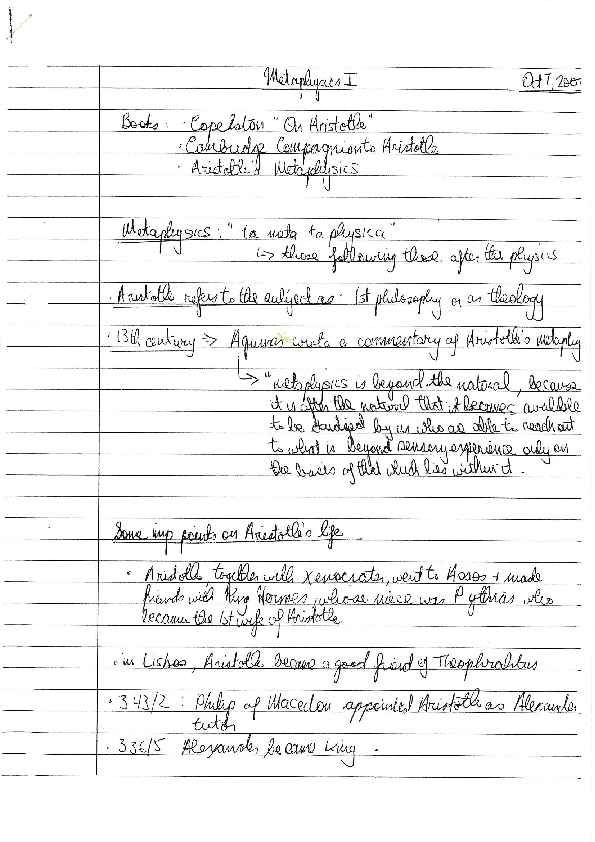 Metaphysics I
Oct 7, 200
Books: · Copelston "On Aristotle"
· Cambridge Compagnion to Aristotle
· Aristotle's Metaphysics
Metaphysics: "ta meta ta physica"
↳ those following those after the physics
· Aristotle refers to the subject as: 1st philosophy or as theology
· 13th century => Aquinas wrote a commentary of Aristotle's metaphy
↳ "metaphysics is beyond the natural, because
it is after the natural that it becomes available
to be studied by us who are able to reach out
to what is beyond sensory experience only on
the basis of that which lies within it.
Some imp points on Aristotle's life
· Aristotle, together with Xenocrates, went to Assos + made
friends with King Hermes, whose niece was Pythias who
became the 1st wife of Aristotle
· in Lisbos, Aristotle became a good friend of
· 343/2 : Philip of Macedon appointed Aristotle as Alexander
tutor
· 336/5 Alexander became king.